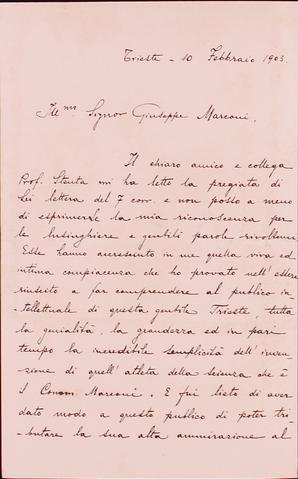 Trieste - 10 Febbraio 1903.
Ill.mo Signor Giuseppe Marconi,
Il chiaro amico e collega
Prof. Stenta mi ha letto la pregiata di
Lei lettera del 7 corr. e non posso a meno
di esprimerle la mia riconoscenza per
le lusinghiere e gentili parole rivoltemi.
Esse hanno accresciuto in me quella viva ed
intima compiacenza che ho provato nell'essere
riuscito a far comprendere al pubblico in-
tellettuale di questa gentile Trieste, tutta
la genialità, la grandezza ed in pari
tempo la incredibile semplicità dell'inven-
zione di quell'atleta della scienza che è
il Marconi. E fui lieto di aver
dato modo a questo pubblico di poter tri-
butare la sua alta ammirazione al